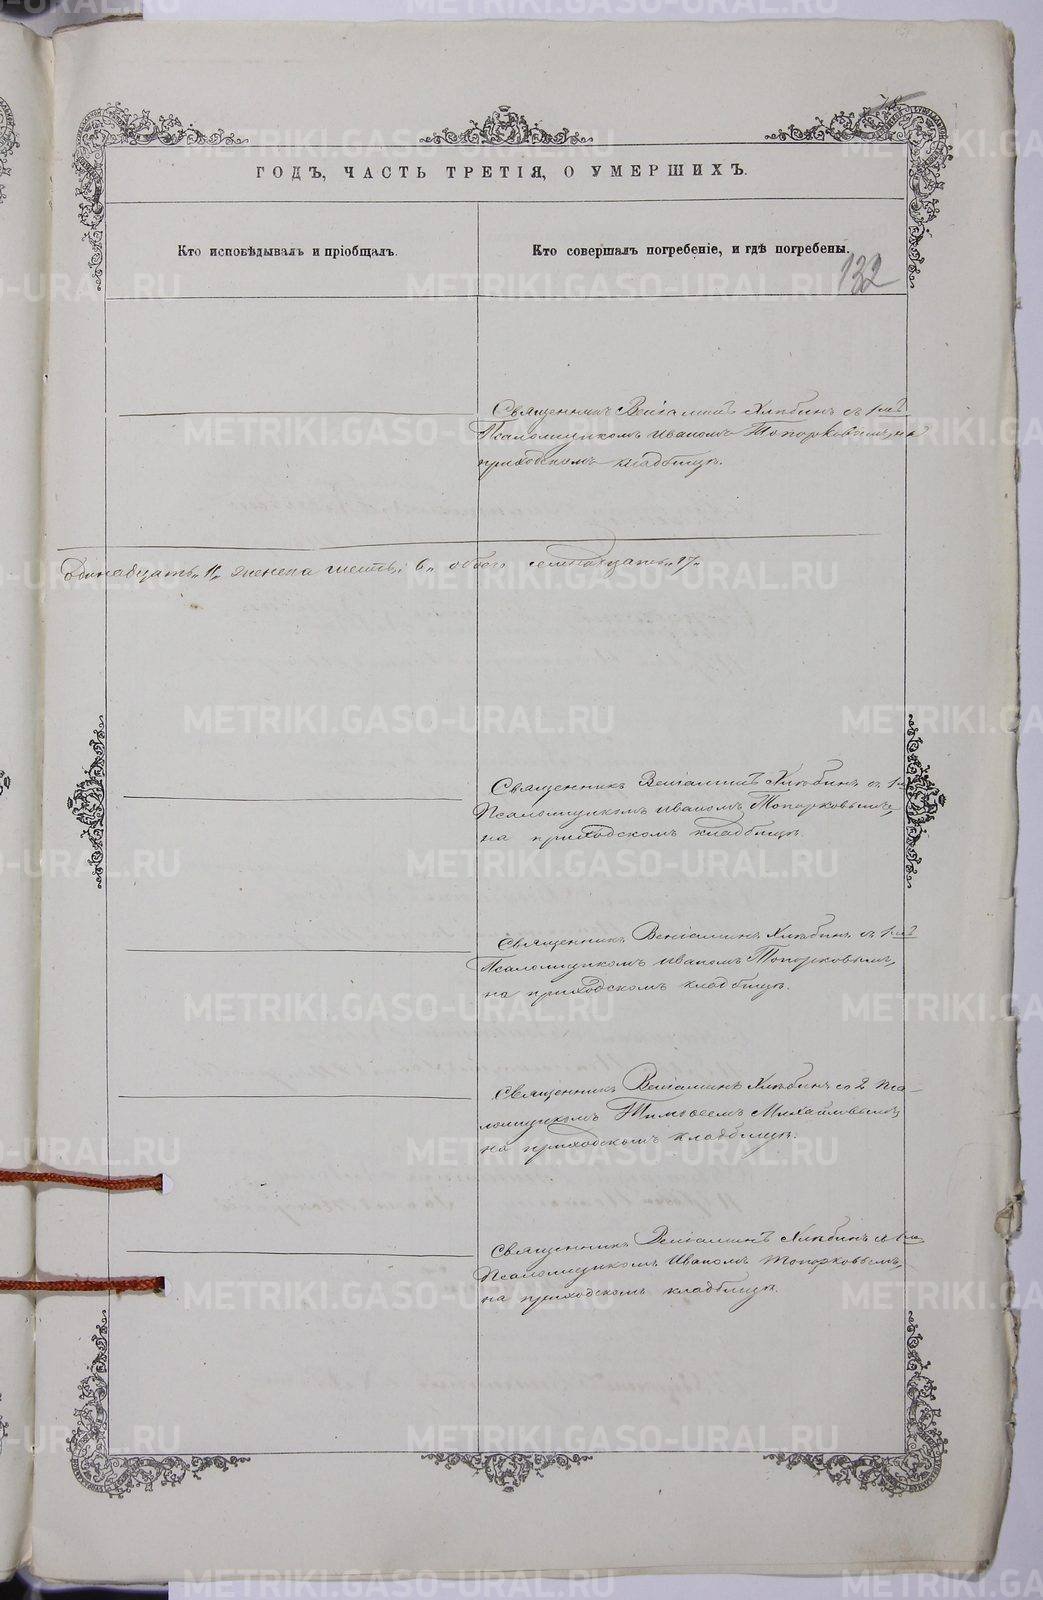 ГОДЪ, ЧАСТЬ ТРЕТІЯ, О УМЕРШИХЪ.
Кто исповѣдывалъ и пріобщалъ.
Кто совершалъ погребеніе, и гдѣ погребены.
132
Священникъ Веніаминъ Хлѣбинъ съ 1мъ
Псаломщикомъ Иваномъ Топорковымъ, на
приходскомъ кладбищѣ.
Одинадцать „11„ женска шесть „6„ обоего семнадцать „17„
Священникъ Веніаминъ Хлѣбинъ съ 1мъ
Псаломщикомъ Иваномъ Топорковымъ,
на приходскомъ кладбищѣ.
Священникъ Веніаминъ Хлѣбинъ съ 1мъ
Псаломщикомъ Иваномъ Топорковымъ,
на приходскомъ кладбищѣ.
Священникъ Веніаминъ Хлѣбинъ со 2 Пса-
ломщикомъ Тимофеемъ Михайловымъ
на приходскомъ кладбищѣ.
Священникъ Веніаминъ Хлѣбинъ съ 1мъ
Псаломщикомъ Иваномъ Топорковымъ,
на приходскомъ кладбищѣ.
METRIKI.GASO-URAL.RU